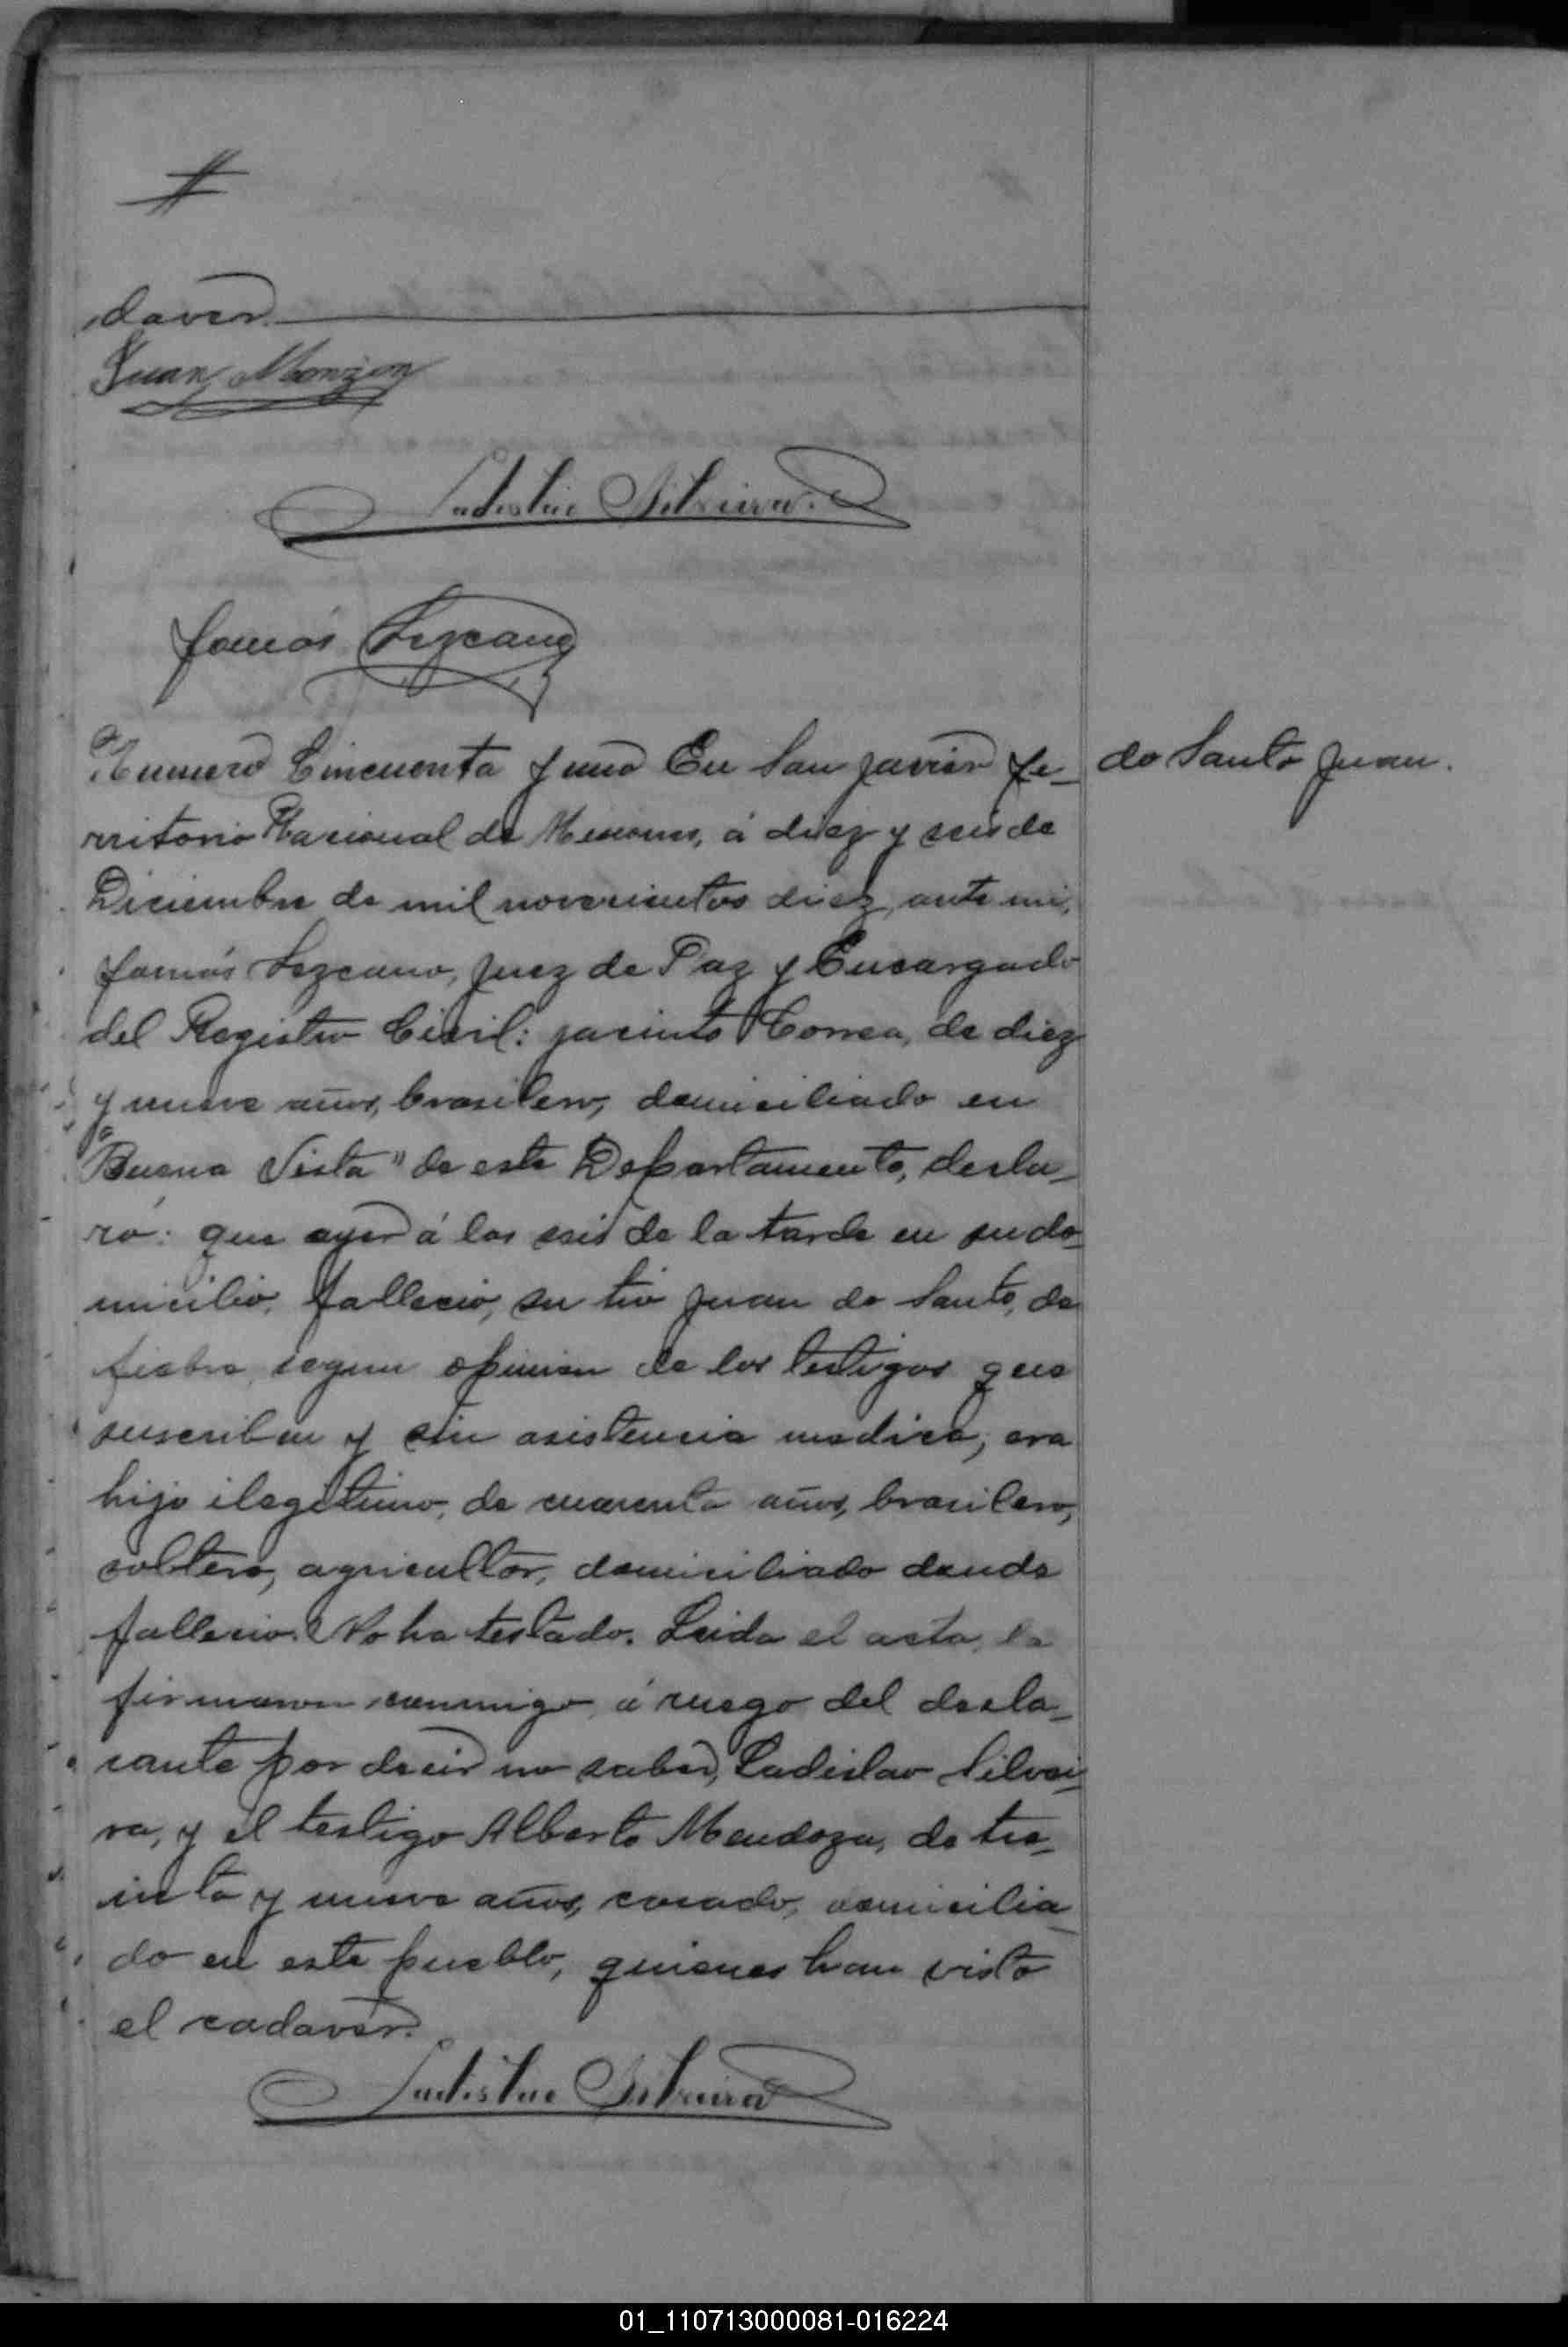 #
daver.
Juan Monzon
Ladislao Silveira.
Tomás Lezcano
Numero Cincuenta y uno En San Javier Te-
do Santo Juan.
rritorio Nacional de Misiones, á diez y seis de
Diciembre de mil novecientos diez, ante mi,
Tomás Lezcano, Juez de Paz y Encargado
del Registro Civil: Jacinto Correa, de diez
y nueve años, brasilero, domiciliado en
"Buena Vista" de este Departamento, decla-
ró: que ayer á las seis de la tarde en su do-
micilio, fallecio, su tio Juan do Santo, de
fiebre, segun opinion de los testigos que
suscriben y sin asistencia medica, era
hijo ilegitimo, de cuarenta años, brasilero,
soltero, agricultor, domiciliado donde
fallecio. No ha testado. Leida el acta, la
firmaron conmigo, á ruego del decla-
rante por decir no saber, Ladislao Silvei-
ra, y el testigo Alberto Mendoza, de tre-
inta y nueve años, casado, domicilia-
do en este pueblo, quienes han visto
el cadaver.
Ladislao Silveira
01_110713000081-016224